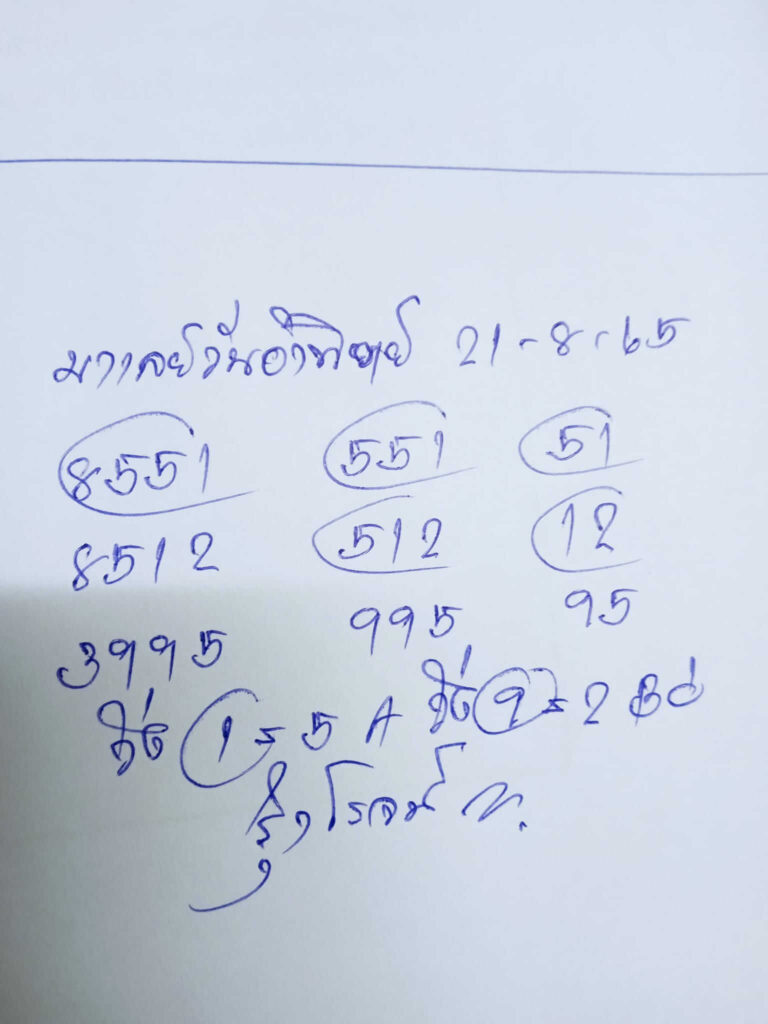 มาเลย์วันอาทิตย์ 21-8-65
8551 551 51
8512 512 12
3995 995 95
วิ่ง 1=5 A วิ่ง 9=2
รุ่งโรจน์